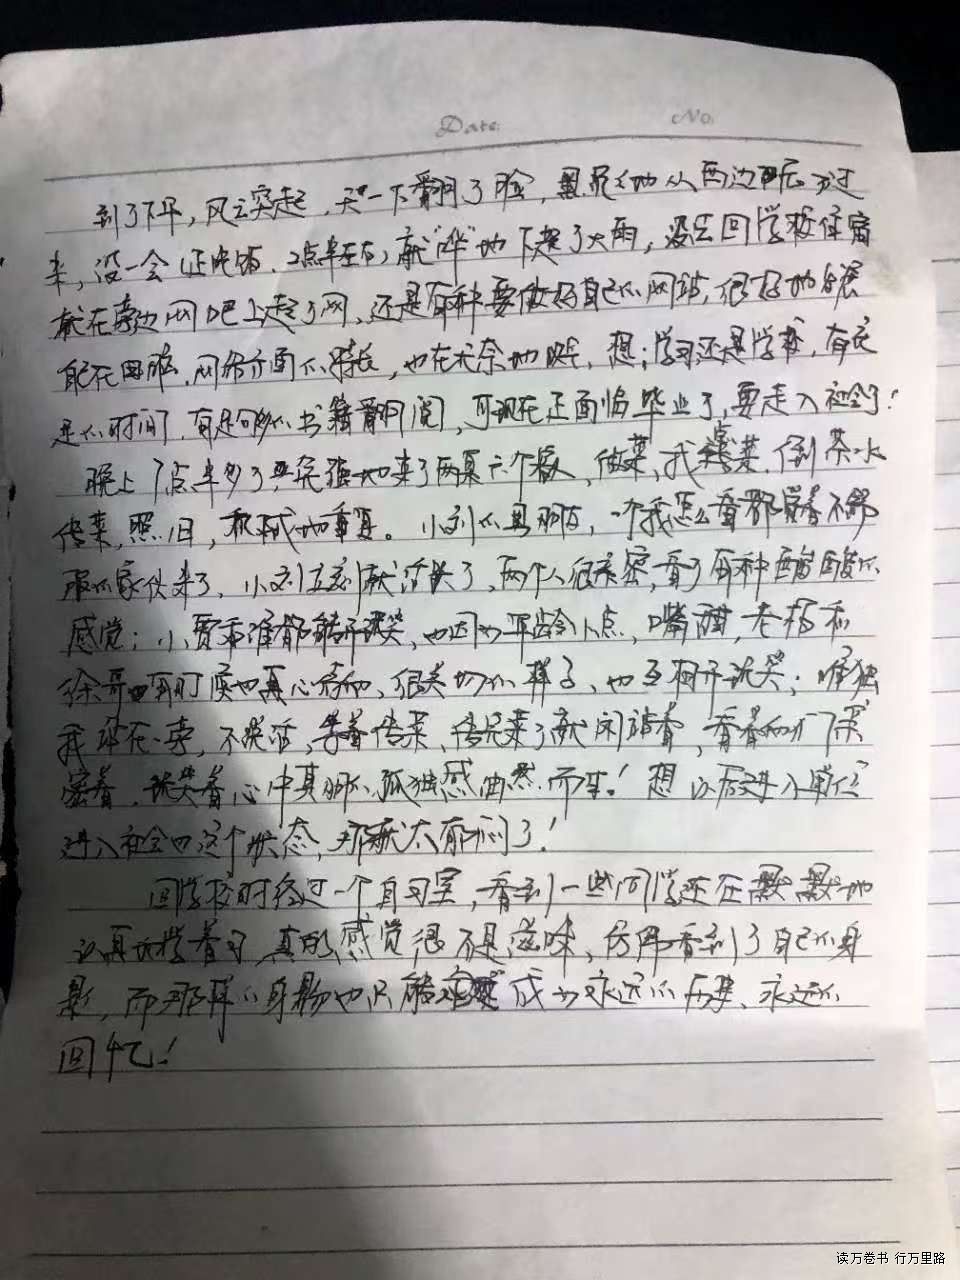 Date: No.
到了下午，风云突起，天一下翻了脸，黑乎乎地从西边压了过
来，没一会 正吃饭，2点半左右，就"哗"地下起了大雨，没去回学校住宿
就在旁边网吧上起了网，还是有种要做好自己的网站，很好地发展
能不困难，网络方面不特长，也在无奈地 想：学习还是学校，有充
足的时间，有足够的书籍翻阅，可现在正面临毕业了，要走入社会了！
晚上7点半多了 地来了两桌六个客人，做菜，我端菜，倒茶水
传菜，照旧，机械地重复。小刘的男朋友，一个我怎么看都觉着不舒
服的家伙来了，小刘立刻就活跃了，两个人很亲密，看了有种酸酸的
感觉；小贾和谁都能开玩笑，也因为年龄小点，嘴甜，老板和
徐哥 有时候也真心 ，很关切的样子，也互相开玩笑；唯独
我站在一旁，不说话，等着传菜，传完菜了就闲站着，看着他们亲
密着，说笑着 心中真 孤独感油然而生！想以后进入单位
进入社会也这个状态，那就太郁闷了！
回学校时经过一个自习室，看到一些同学还在默默地
认真地学着习 真的感觉很不是滋味，仿佛看到了自己的身
影，而那样的身影也只能 成为永远的历史、永远的
回忆！
读万卷书 行万里路